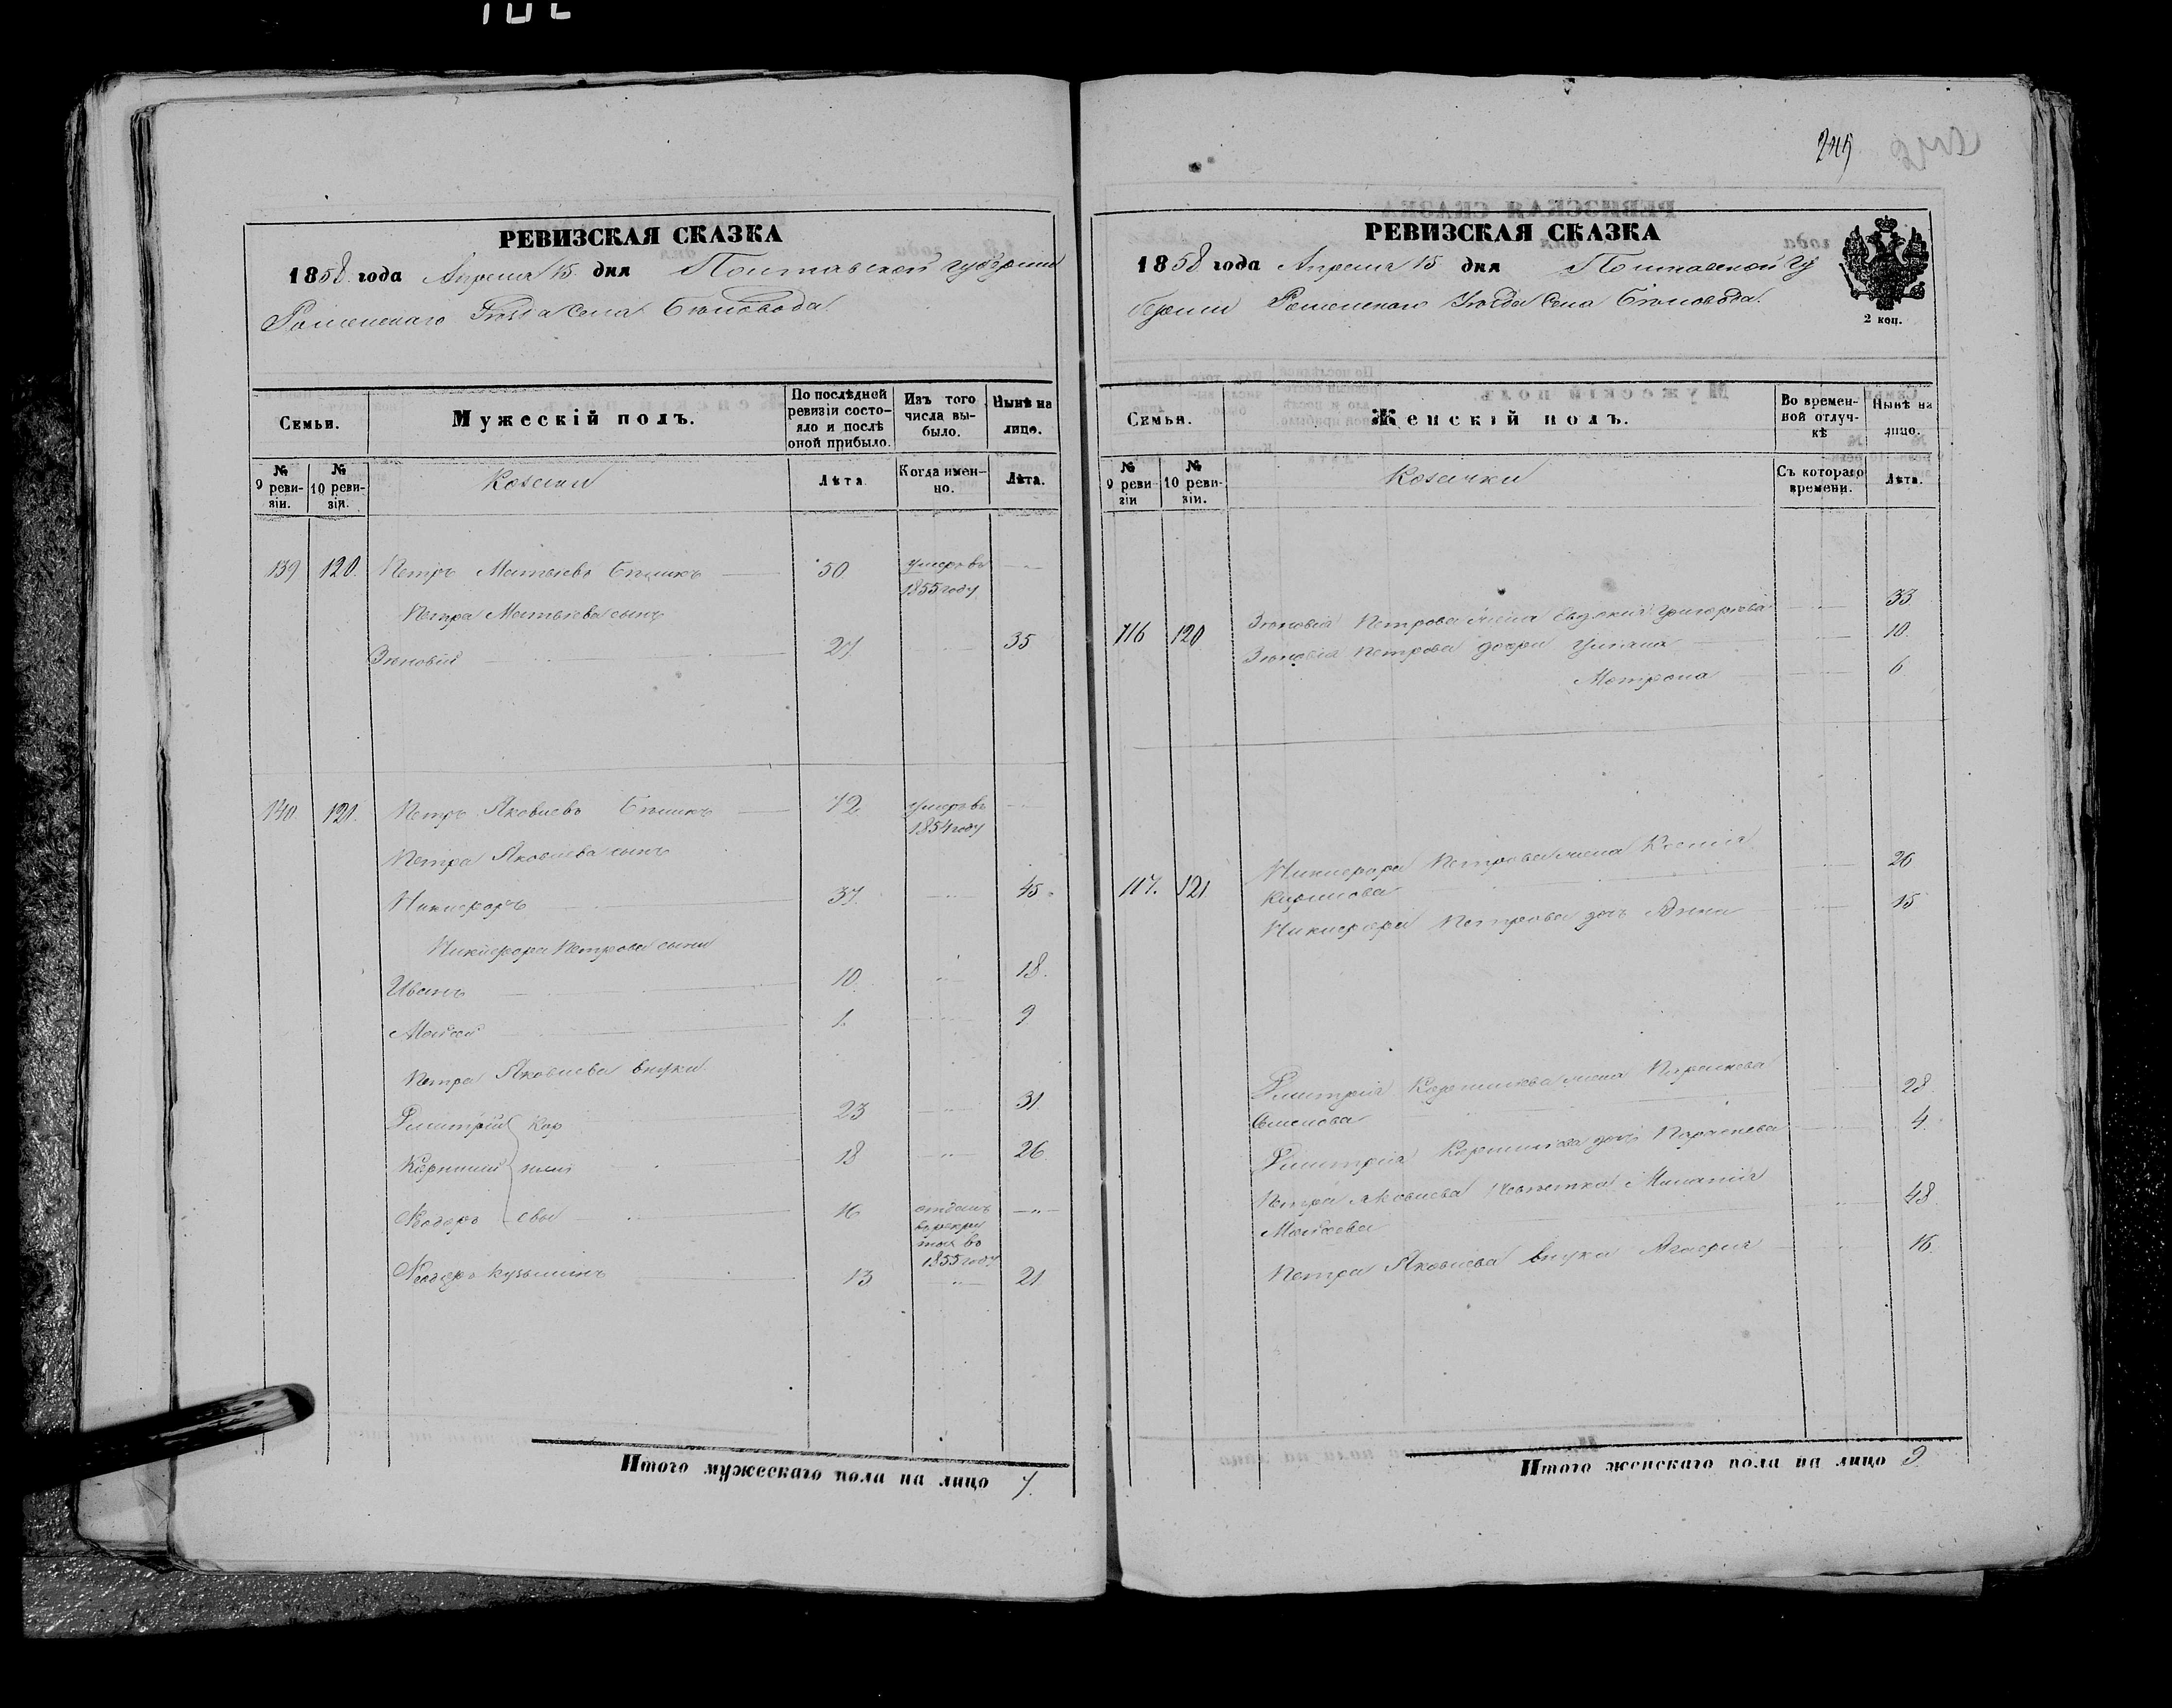 РЕВИЗСКАЯ СКАЗКА
1858 года Апреля 15 дня Полтавской губернии
Роменскаго Уезда Села Беловода.
Семьи.
Мужескій полъ.
По послѣдней ревизіи состо-
яло и послѣ
оной прибыло.
Изъ того
числа вы-
было.
Нынѣ на
лицо.
№
9 реви-
зіи.
№
10 реви-
зіи.
Козаки
Лѣта
Когда имен-
но.
Лѣта.
139 120. Петръ Матвіевъ 50. умеръ въ
1855 году
Петра Матвіева сынъ
Зіновій 27. 35
140. 121. Петръ Яковлевъ 72 умеръ въ
1854 году
Петра Яковлева сынъ
Никифоръ 37. 45
Никифора Петрова сыны
Иванъ 10. 18.
Мойсей 1. 9
Петра Яковлева внуки
Дмитрій Кор 23 31.
Корнилий нили 18 26.
Феодоръ евы 16 отданъ
в рекру
ты во
1855 году
Феодоръ Кузьминъ 13 21
Итого мужескаго пола на лицо 7.
245
РЕВИЗСКАЯ СКАЗКА
1858 года Апреля 15 дня Полтавской Гу
берніи Роменскаго Уезда Села Беловода.
2 коп.
Семьи.
Женскій полъ.
Во времен-
ной отлуч-
кѣ
Нынѣ на
лицо.
№
9 реви-
зіи
№
10 реви-
зіи.
Козачки
Съ котораго
времени.
Лѣта.
Зіновія Петрова жена Евдокія Григорьева 33.
116 120 Зіновія Петрова дочери Уліяна 10.
Мотрона 6.
Никифора Петрова жена Ксенія
117. 121. Карпова 26
Никифора Петрова дочь Анна 15
Дмитрія Корнилієва жена Параскева
Семенова 28.
Дмитрія Корнилієва дочь Параскева 4.
Петра Яковлева невѣстка Меланія
Мойсеева 48.
Петра Яковлева внука Агафія 16.
Итого женскаго пола на лицо 9.